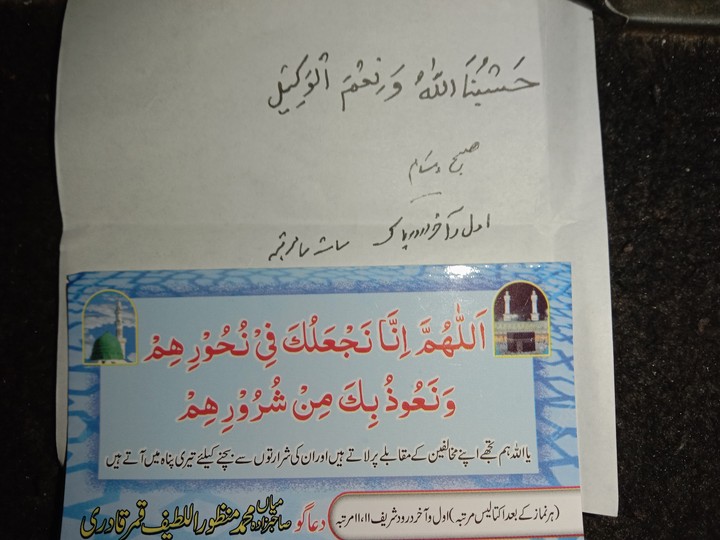 حَسْبُنَا اللّٰهُ وَنِعْمَ الْوَكِيْل
صبح و شام
اول و آخر درود پاک سات سات مرتبہ
اَللّٰهُمَّ اِنَّا نَجْعَلُكَ فِیْ نُحُوْرِهِمْ
وَنَعُوْذُ بِكَ مِنْ شُرُوْرِهِمْ
یا اللہ ہم تجھے اپنے مخالفین کے مقابلے پر لاتے ہیں اور ان کی شرارتوں سے بچنے کیلئے تیری پناہ میں آتے ہیں
(ہر نماز کے بعد اکتالیس مرتبہ) اول و آخر درود شریف ۱۱،۱۱ مرتبہ
دعا گو میاں صاحبزادہ محمد منظور اللطیف قمر قادری